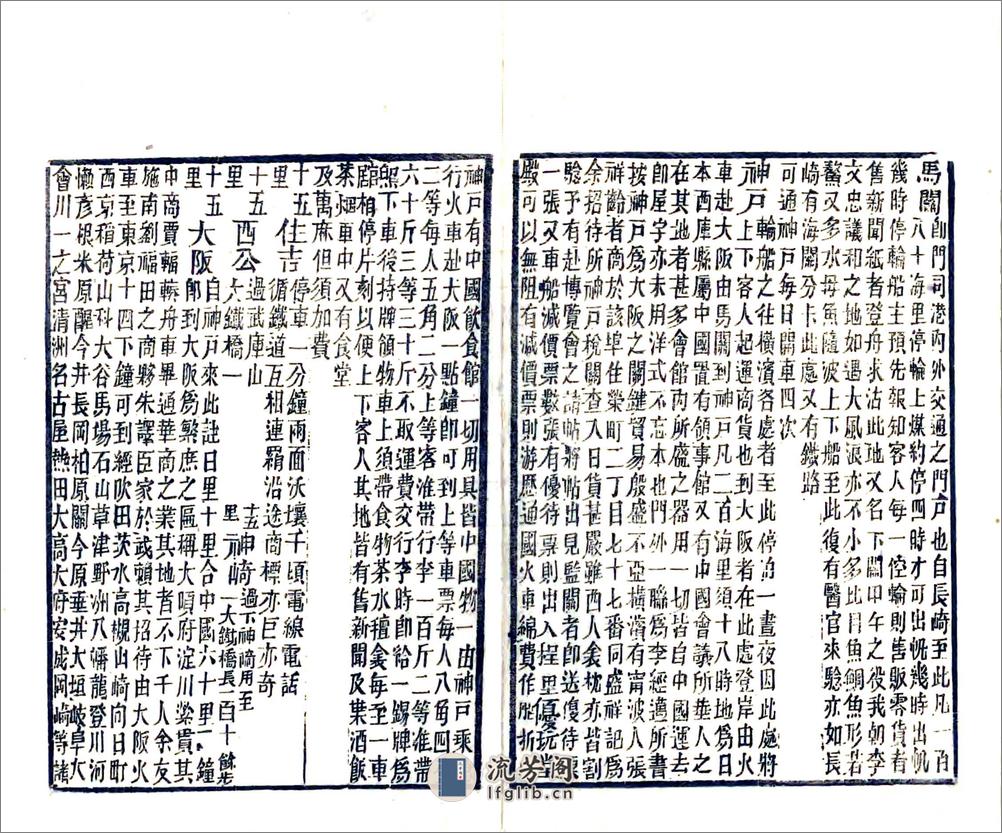 馬關卽門司港內外交通之門戶也自長崎至此凡一百
八十海里停輪上煤約停四時才可出帆幾時出帆
幾時停輪船主預先報知客人每一停輪則售販零貨者
售新聞紙者登舟求沽此地又名下關甲午之役我朝李
文忠議和之地如遇大風浪亦不小多比目魚鯛魚形若
鱉又多水母魚隨波上下船至此復有醫官來驗亦如長
崎有海關分卡此處又有鐵路
可通神戶每日開車四次
神戶輪船之往橫濱各處者至此停泊一晝夜因此處將
上下客人起運商貨也到大阪者在此處登岸由火
車赴大阪由馬關到神戶凡二百海里須十八時地仍日
本西庫縣屬中國置有領事館又有中國會議所華人之
在其地者甚多會館內所盛之器用一切皆自中國運去
卽屋宇亦未用洋式不忘本也門外一聯爲李經邁所書
按神戶爲大阪之關鍵貿易殷盛不亞橫濱有甯波人張
祥齡者商於該埠住榮町二丁目七十七番同盛祥記爲
余招待所神戶稅關查入口貨甚嚴雖西人衾枕亦皆割
驗予有赴博覽會之請帖將帖出見監關者卽送優待票
一張又車船減價票數張有優待票則出入程里優玩當
殿可以無阻有減價票則游歷通國火車綿費作歷折
神戶有中國飲食館一切用具皆中國物一由神戶乘
行火車赴大阪一點鐘卽可到上等車票每人八角四
二等每人五角二分上等客准帶行李一百斤二等准帶
六十斤三等三十斤不取運費交行李時卽給一錫牌爲
照下車後持牌領物車上須帶食物茶水氊衾每至一車
館相停片刻以便上下客人其地皆有售新聞及菓酒飯
茶烟車中又有食堂
及萬麻但須加費
十五 住吉 停車一分鐘兩面沃壤千頃電線電話
里 循鐵道互相連羂沿途商標亦巨亦奇
十五 西公 過武庫山 十五 神崎 過下神崎用至
里 大鐵橋一 里 一大鐵橋長一百十餘步
十五 大阪 自神戶來此註日里十里合中國六十里一鐘
里 卽到大阪爲繁庶之區稱大頃府淀川縈貫其
中商賈輻輳舟車畢通華商之業其地者不下千人余友
施南劉福田之商夥朱譯臣家於武頓其招待由大阪火
車至東京十四下鐘可到經吹田茨水高槻山崎向日町
西京稻荷山科大谷馬場石山草津野洲八幡龍登川河
懶彥根米原醒今井長岡柏原關今原垂井大垣岐阜大
會川一之宮清洲名古屋熱田大高大府安城岡崎等諸
流芳阁
lfglib.cn